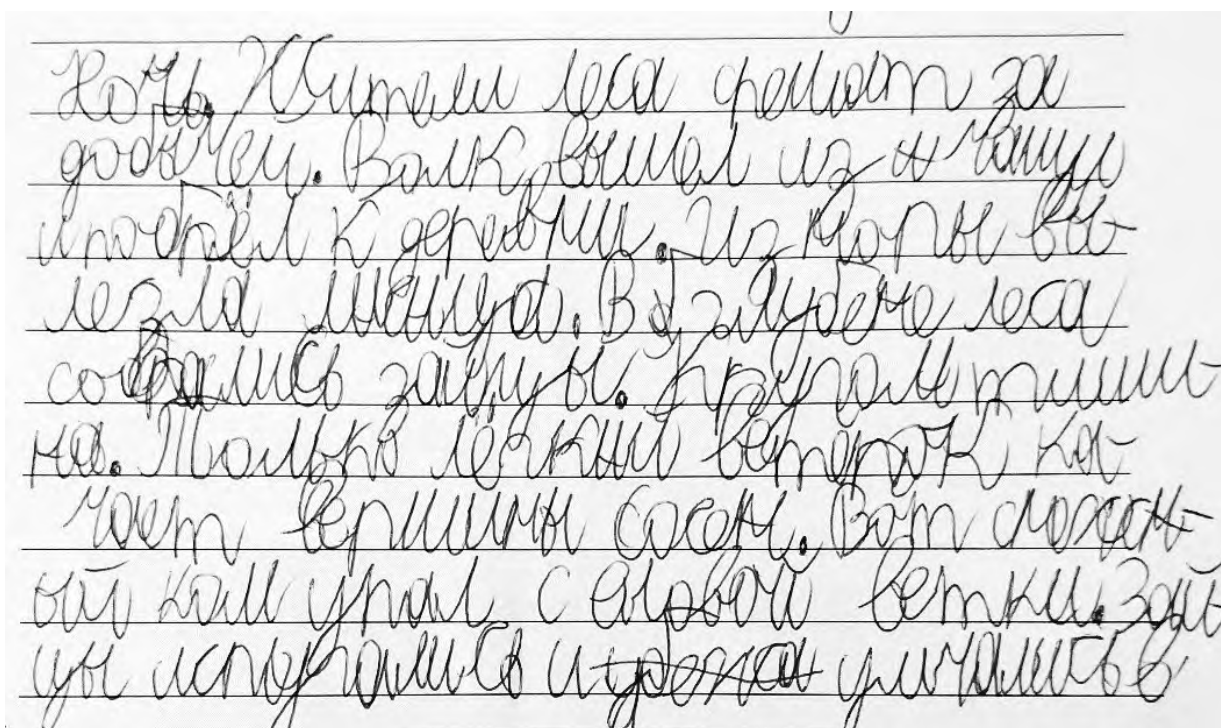 Ночь. Жители леса решают за
добычей. Волк вышел из чащи
и побрёл к деревни. Из норы вы-
лезла лисица. В глубене леса
собрались зайцы. Кругом тиши-
на. Только лёгкий ветерок ка-
чает вершины сосен. Вот снежн-
ый ком упал с еловой ветки. Зай-
цы испугались и умчались в